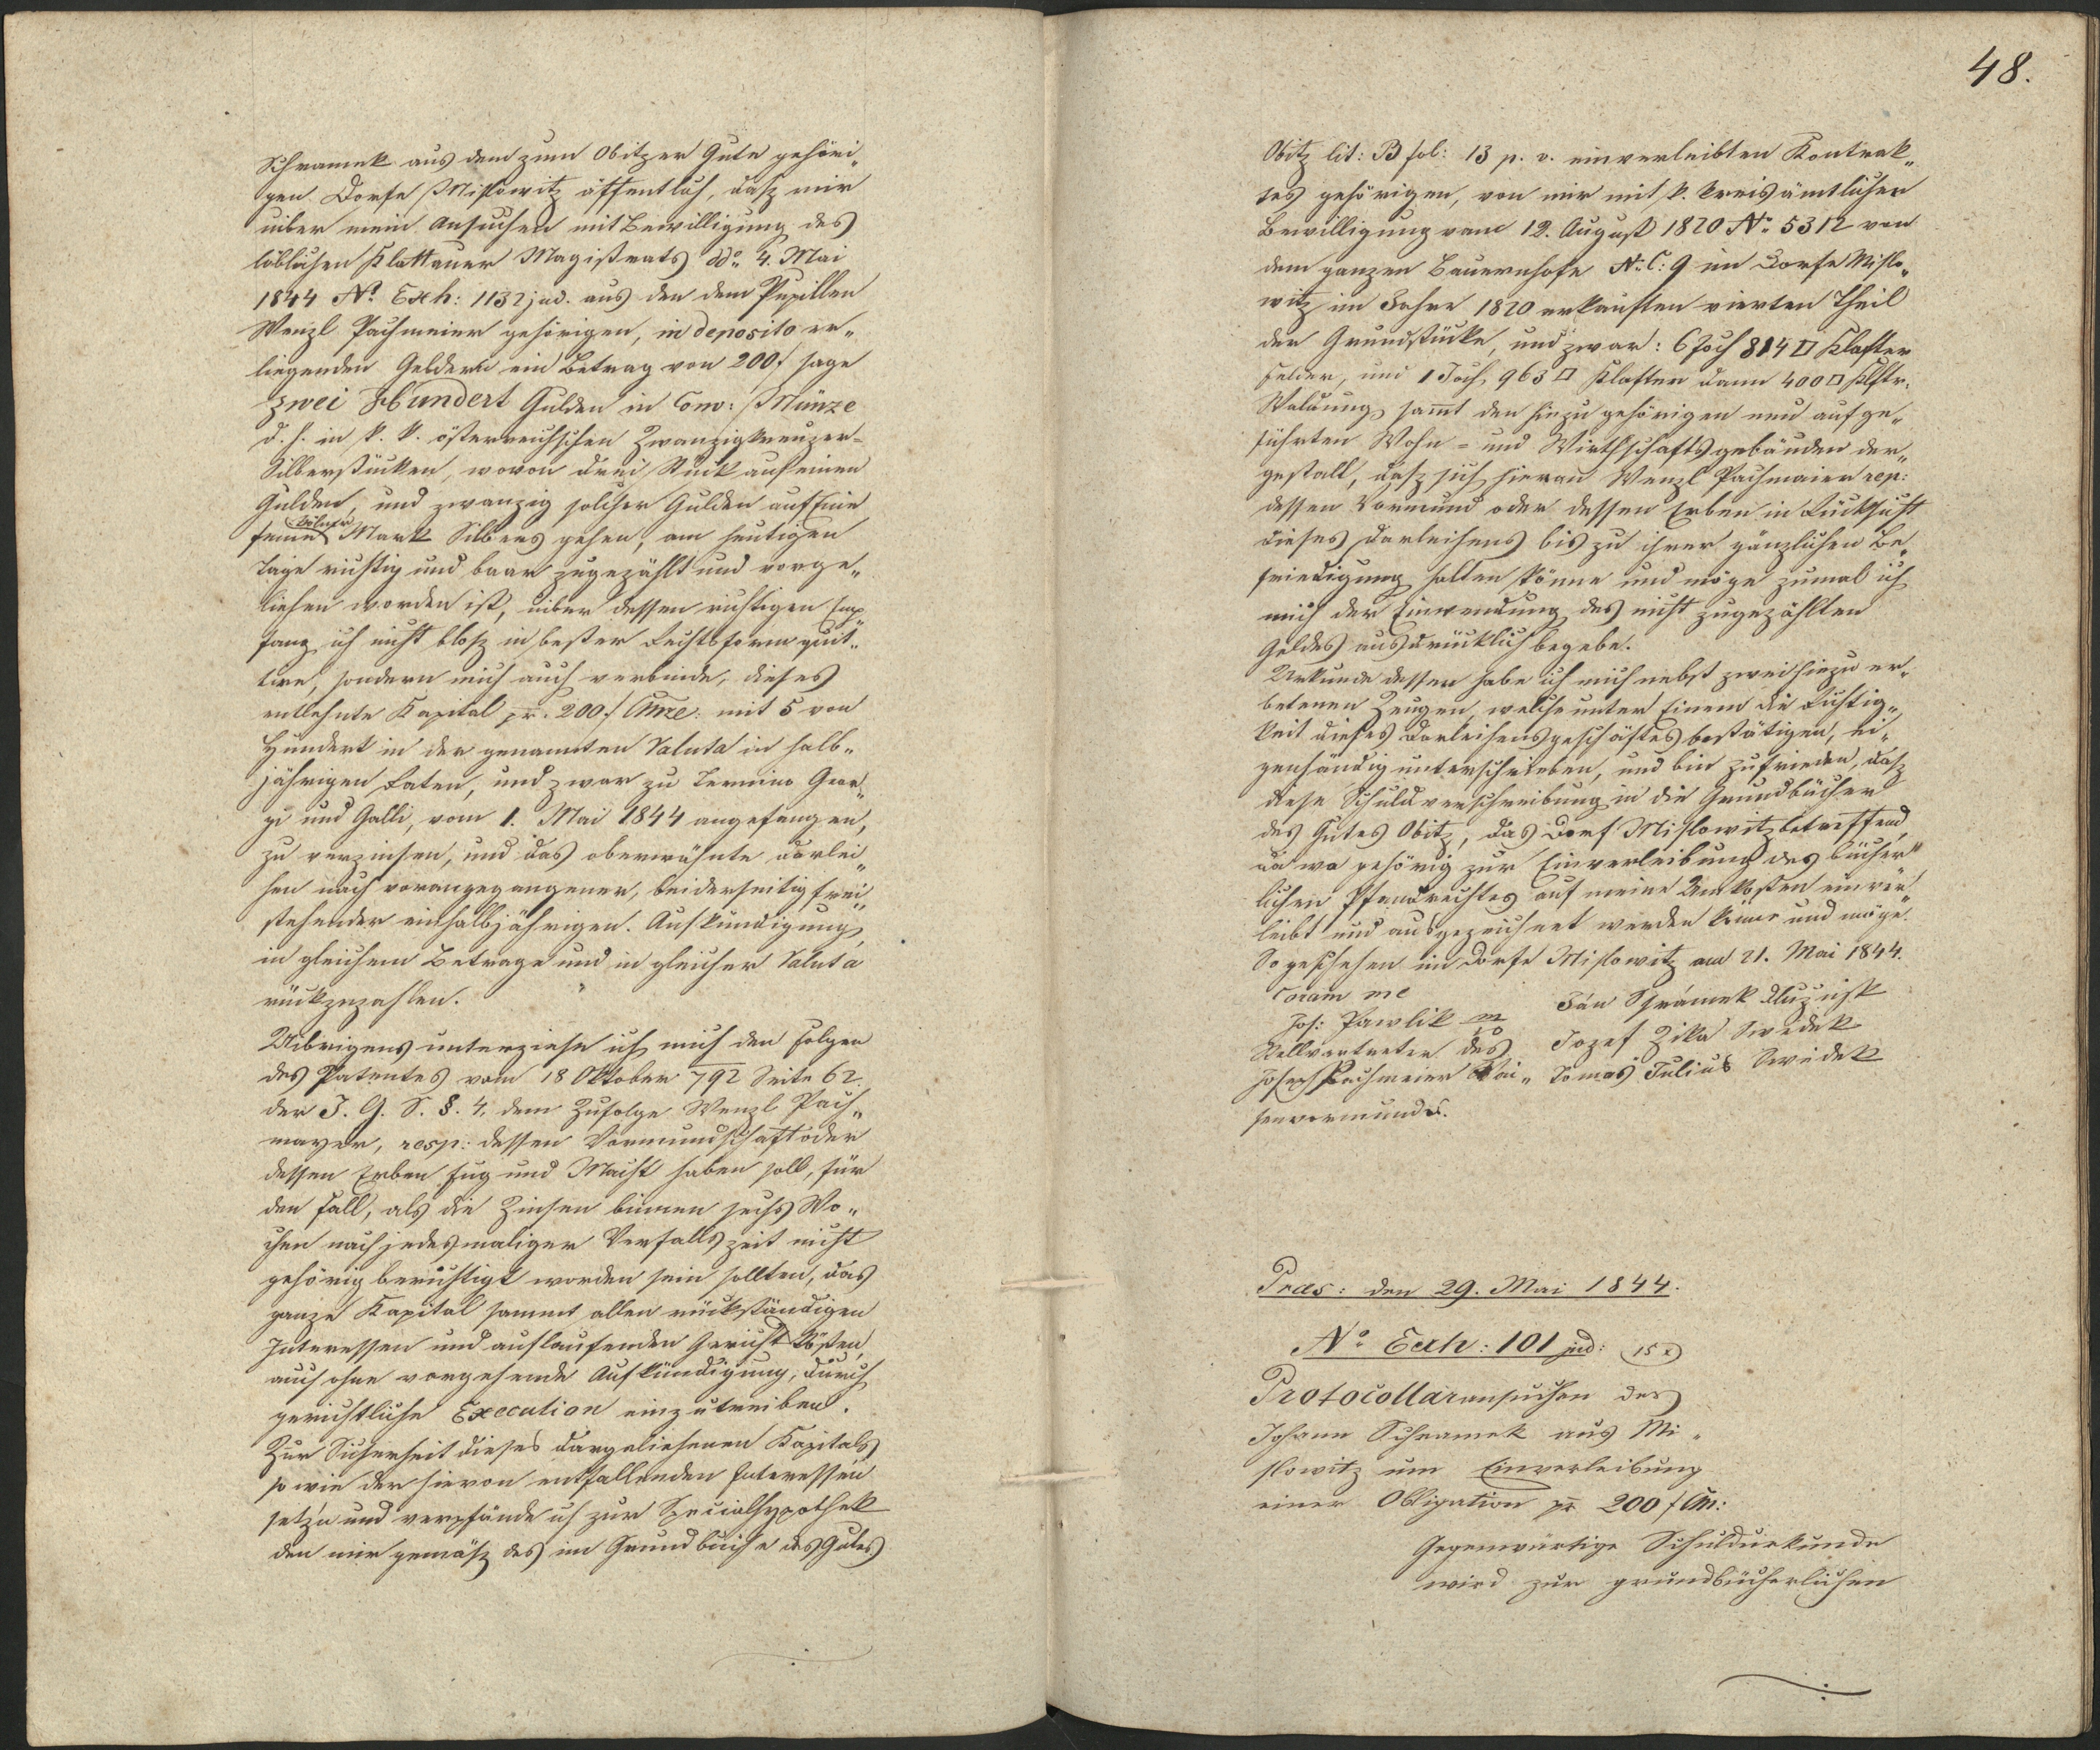 Schramek aus dem zum Obitzer Gute gehöri„
gen Dorfe Mislowitz öffentlich, dasz mir
uiber mein Ansuchen mit Bewilligung des
löblichen Klattauer Magistrats ddo 4. Mai
1844 No Exh: 1132 jud. aus den dem Pupillen
Wenzl Pachmeier gehörigen, in deposito er„
liegenden Geldern ein Betrag von 200 f sage
zwei Hundert Gulden in Conv: Münze
d. h. in k. k. österreichschen Zwanzigkreuzer=
Silberstücken, wovon drei Stück auf einen
Gulden, und zwanzig solcher Gulden auf Eine
feine Mark Silbers gehen, am heutigen
Tage richtig und baar zugezählt und vorge„
liehen worden ist, uiber dessen richtigen Emp„
fang ich nicht blosz in bester Rechtsform quit„
tire, sondern mich auch verbinde, dieses
entlehnte Kapital pr. 200 f CMze: mit 5 von
Hundert in der genannten Valuta in halb„
jährigen Raten, und zwar zu Termino Geor„
gi und Galli, vom 1. Mai 1844 angefangen,
zu verzinsen, und das oberwähnte Darlei„
hen nach vorangegangener, beiderseitig frei„
stehender einhalbjährigen Aufkündigung,
in gleichem Betrage und in gleicher Valuta
rückzuzahlen.
Uibrigens unterziehe ich mich den Folgen
des Patentes vom 18 Oktober 792 Seite 62.
der J. G. S. §. 4. dem Zufolge Wenzl Pach„
mayer, resp: dessen Vormundschaft oder
dessen Erben Fug und Macht haben soll, für
den Fall, als die Zinsen binnen sechs Wo„
chen nach jedesmaliger Verfallszeit nicht
gehörig berichtigt worden sein sollten, das
ganze Kapital sammt allen rückständigen
Interessen und auflaufenden Gerichtskösten,
auch ohne vorgehende Aufkündigung, durch
gerichtliche Execution einzutreiben.
Zur Sicherheit dieses dargeliehenen Kapitals
so wie der hievon entfallenden Interessen
setze und verpfände ich zur Specialhypothek
den mir gemäsz des im Grundbuche des Gutes
48.
Obitz lit: B fol: 13 p. v. einverleibten Kontrak„
tes gehörigen, von mir mit k. kreisämtlicher
Bewilligung vom 12. August 1820 No 5312 von
dem ganzen Bauernhofe N. C: 9 im Dorfe Mislo„
witz im Jahre 1820 erkauften vierten Theil
der Grundstücke, und zwar: 6 Joch 814 □ Klafter
Felder, und 1 Joch, 963 □ Klafter dann 400 □ Klftr.
Waldung sammt den hinzu gehörigen neu aufge„
führten Wohn= und Wirthschaftsgebäuden der„
gestalt, dasz sich hieran Wenzl Pachmaier rep:
dessen Vormund oder dessen Erben in Rücksicht
dieses Darleihens bis zu ihrer gänzlichen Be„
friedigung halten könne und möge zumal ich
mich der Einwendung des nicht zugezählten
Geldes ausdrücklich begebe.
Urkunde dessen habe ich mich nebst zwei hiezu er„
betenen Zeugen, welche unter Einem die Richtig„
keit dieses Darleihensgeschäftes bestätigen, ei„
genhändig unterschrieben, und bin zufrieden, dasz
diese Schuldverschreibung in die Grundbücher
des Gutes Obitz, das Dorf Mislowitz betreffend,
da wo gehörig zur Einverleibung des bücher„
lichen Pfandrechtes auf meine Unkosten einver„
leibt und ausgezeichnet werden könne und möge.
So geschehen im Dorfe Mislowitz am 21. Mai 1844.
Coram me
Jos: Pawlik
Stellvertreter des
Joseph Pachmeier Wai„
senvormundes.
Ján Šrámek Dlužnik
Jozef Zika Swědek
Tomaš Julius Swědek
Präs: den 29. Mai 1844.
No Exh: 101 jud: 15 x
Protocollaransuchen des
Johann Schramek aus Mi„
slowitz um Einverleibung
einer Obligation pr 200 f CM:
Gegenwärtige Schuldurkunde
wird zur grundbücherlichen